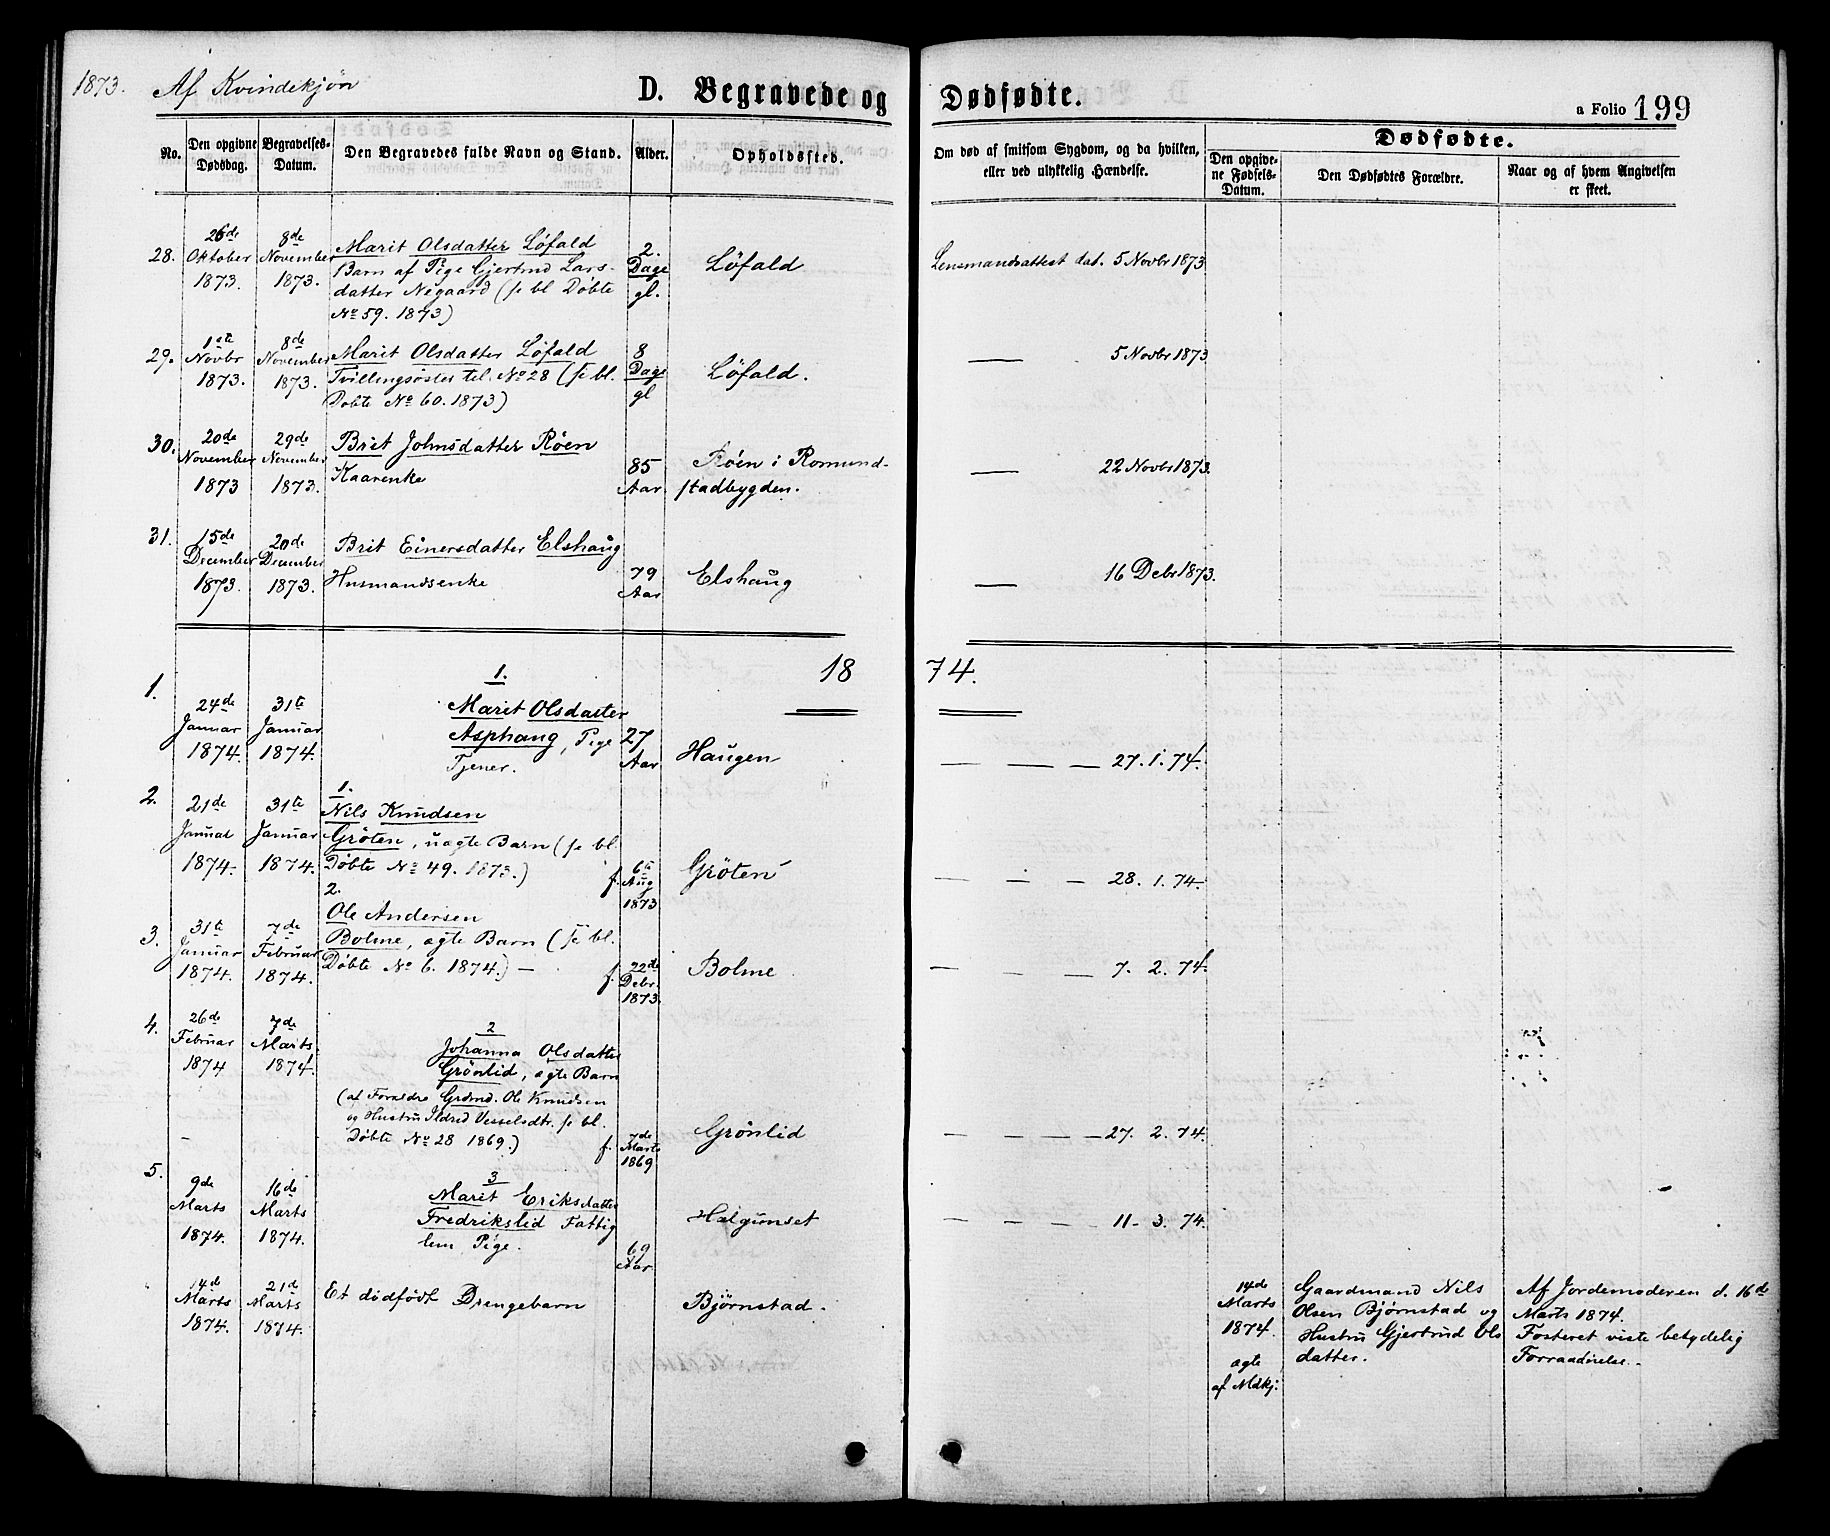 1873. Af Kvindekjøn
D. Begravede og Dødfødte.
a Folio 199
No.
Den opgivne Dødsdag.
Begravelses-Datum.
Den Begravedes fulde Navn og Stand.
Alder.
Opholdssted.
Om død af smitsom Sygdom, og da hvilken,
eller ved ulykkelig Hændelse.
Dødfødte.
Den opgivne Fødsels-Datum.
Den Dødfødtes Forældre.
Naar og af hvem Angivelsen er skeet.
28.
26de Oktober 1873.
8de November 1873.
Marit Olsdatter Löfald
Barn af Pige Gjertrud Lars-
datter Negaard (se bl Döbte
No 59. 1873)
2. Dage gl.
Löfald
Lensmandsattest dat. 5 Novbr 1873
29.
1ste Novbr 1873.
8de November 1873.
Marit Olsdatter Löfald
Tvillingsöster til No 28 (se bl.
Döbte No 60. 1873)
8 Dage gl
Löfald.
— 5 Novbr 1873
30.
20de November 1873
29de November 1873.
Brit Johnsdatter Röen
Kaarenke
85 Aar
Röen i Romund-
stadbygden.
— 22 Novbr 1873.
31.
15de December 1873.
20de December 1873.
Brit Einersdatter Elshaug
Husmandsenke
79 Aar
Elshaug
— 16 Debr 1873.
1874.
1.
24de Januar 1874.
31te Januar 1874.
1.
Marit Olsdatter
Asphaug, Pige
Tjener.
27 Aar
Haugen
— — — — 27. 1. 74.
2.
21de Januar 1874.
31te Januar 1874.
1.
Nils Knudsen
Gröten, uægte Barn (se bl.
Döbte No 49. 1873.)
f. 6te Aug 1873
Gröten
— — — 28. 1. 74.
3.
31te Januar 1874.
7de Februar 1874.
2.
Ole Andersen
Bolme, ægte Barn (se bl.
Döbte No 6. 1874.) —
f. 22de Debr. 1873.
Bolme
— — — 7. 2. 74.
4.
26de Februar 1874
7de Marts 1874.
2
Johanna Olsdatter
Grönlid, ægte Barn
(af Forældre Grdmd. Ole Knudsen
og Hustru Ildrid Vesselsdtr. se bl.
Döbte No 28 1869.)
f. 7de Marts 1869
Grönlid
— — — — 27. 2. 74.
5.
9de Marts 1874.
16de Marts 1874.
3
Marit Eriksdatter
Fredrikslid Fattig
lem Pige.
69 Aar
Halgunset
— — — — 11. 3. 74.
14de Marts 1874.
21de Marts 1874.
Et dödfödt Drengebarn
Bjørnstad.
14de Marts 1874.
ægte
af Mdkj.
Gaardmand Nils
Olsen Bjørnstad og
Hustru Gjertrud Ols
datter.
Af Jordemoderen d. 16de
Marts 1874.
Fosteret viste betydelig
Forraadnelse.